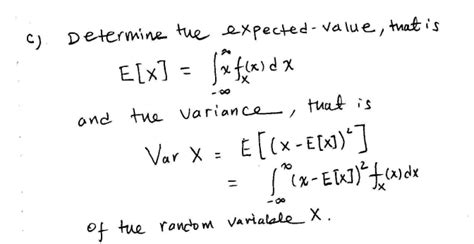 c) Determine the expected-value, that is
E[X] = ∫_{-∞}^{∞} x f_X(x) dx
and the variance, that is
Var X = E[(X-E[X])²]
= ∫_{-∞}^{∞} (x-E[X])² f_X(x) dx
of the random variable X.